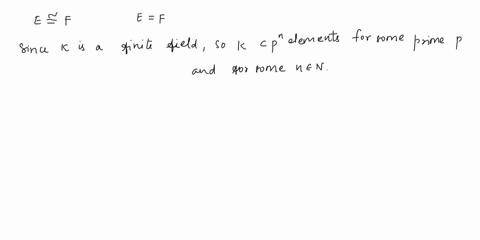 E ≅ F E = F
Since K is a finite field, so K ⊂ pⁿ elements for some prime p
and for some n ∈ N.